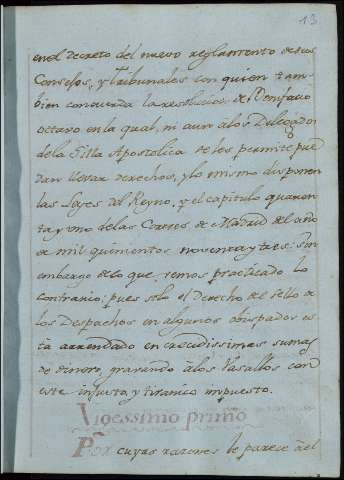 13
en el decreto del nuevo reglamento de sus
Consejos, y Tribunales con quien tam-
bien concuerda la resolucion de Bonifacio
octavo en la qual, ni aun à los Delegados
de la Silla Apostolica se les permite pue
dan llevar derechos, y lo mismo disponen
las Leyes del Reyno, y el capitulo quaren
ta y uno de las Cortes de Madrid del año
de mil quinientos noventa y tres: sin
embargo de lo que vemos practicado lo
contrario; pues solo el derecho del sello de
los Despachos en algunos obispados es
ta arrendado en crecidissimas sumas
de dinero, gravando à los Vasallos con
este injusto, y tiranico impuesto.
Vigessimo primo
Por cuyas razones le parece àel